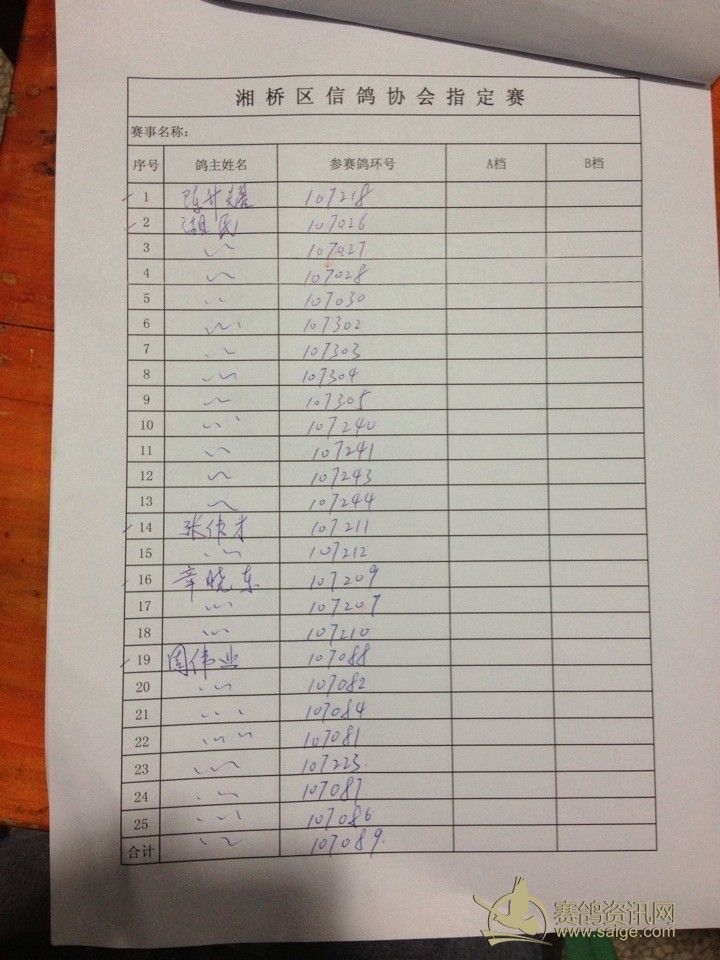 湘桥区信鸽协会指定赛
赛事名称:
序号 鸽主姓名 参赛鸽环号 A档 B档
1 陈升耀 107218
2 祖民 107026
3 〃 107027
4 〃 107028
5 〃 107030
6 〃 107302
7 〃 107303
8 〃 107304
9 〃 107305
10 〃 107240
11 〃 107241
12 〃 107243
13 〃 107244
14 张伟才 107211
15 〃 107212
16 辛晓东 107209
17 〃 107207
18 〃 107210
19 周伟业 107088
20 〃 107082
21 〃 107084
22 〃 107081
23 〃 107223
24 〃 107087
25 〃 107086
合计 〃 107089
赛鸽资讯网
www.saige.com